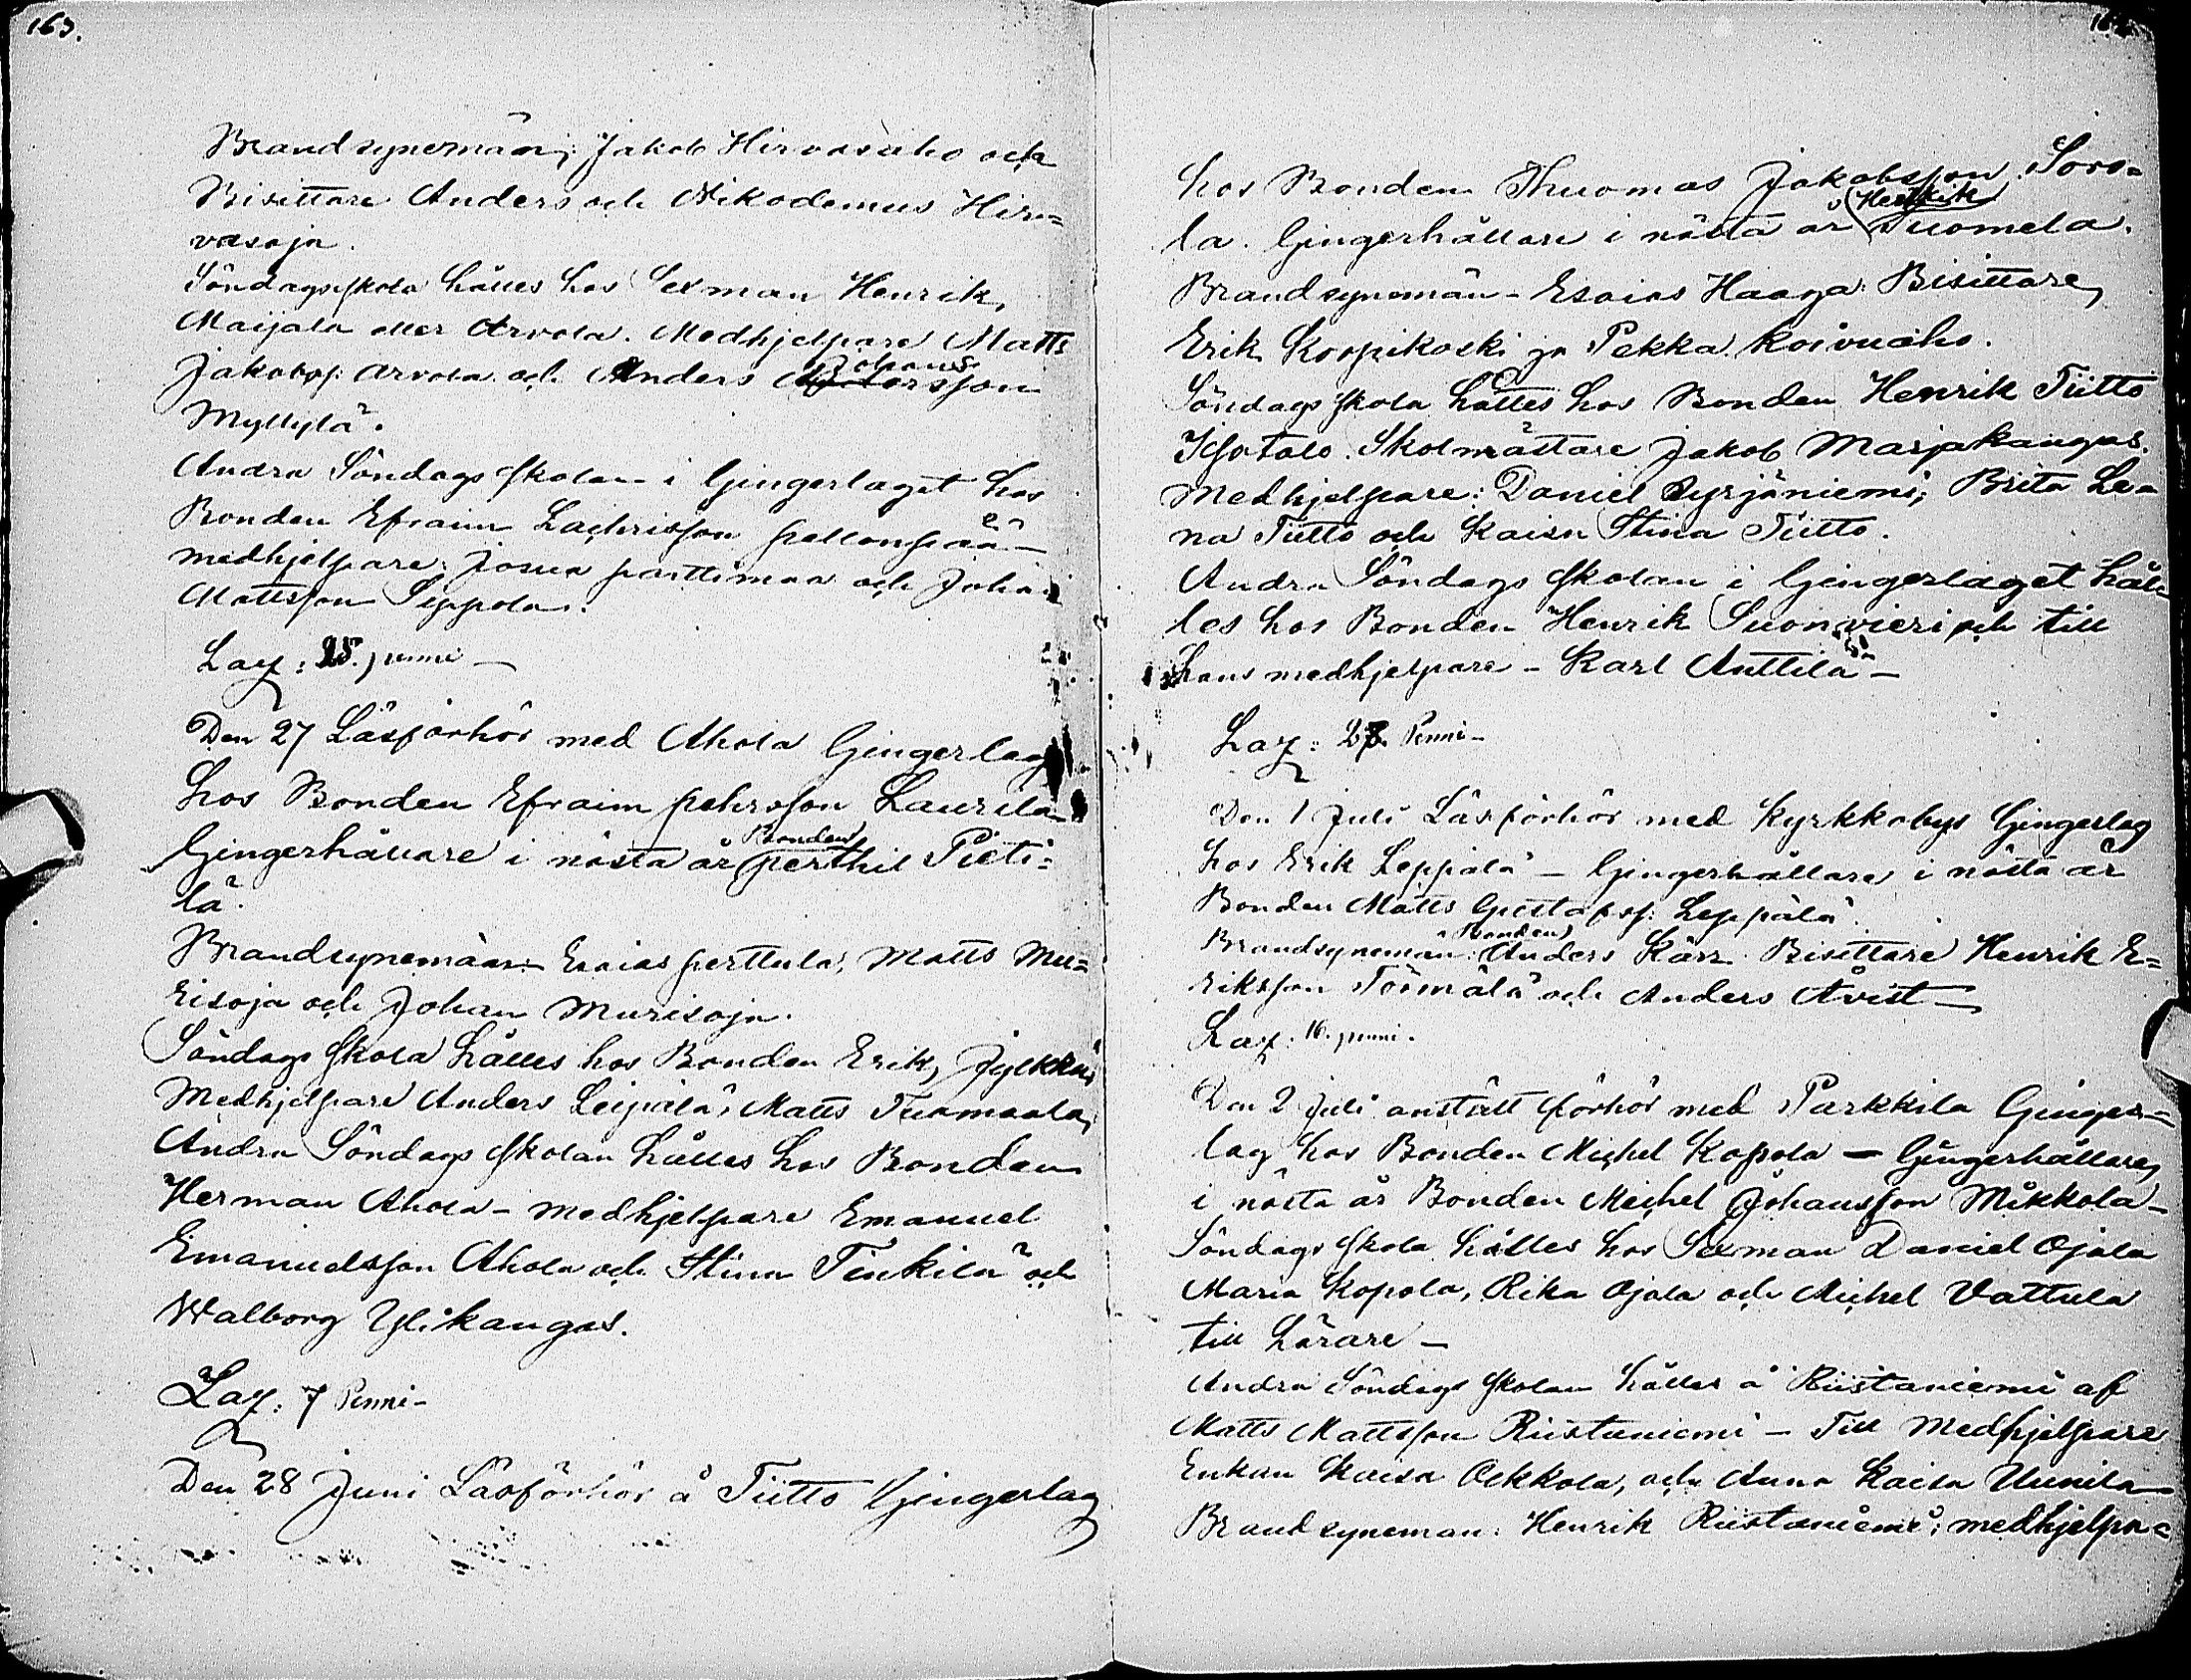 163.
Brandsynemän: Jakob Hirvasaho och
Bisittare Anders och Nikodemus Hir=
vasoja.
Söndagsskola hålles hos Sexman Henrik,
Maijala eller Arvola. Medhjelpare Matts
Jakobss: Arvola och Anders Johansson
Myllylä.
Andra Söndags skolan i Gingerlaget hos
Bonden Efraim Lachrisson pellonpää –
medhjelpare: Josua parttimaa och Johan
Mattsson Seppola.
Laz: 25. penni –
Den 27 Läsförhör med Ahola Gingerlag
hos Bonden Efraim pehrsson Laurila –
Gingerhållare i nästa år Bonden perthil Pieti=
lä.
Brandsynemän: Esaias perttula, Matts Mu=
risoja och Johan Murisoja.
Söndags skola hålles hos Bonden Erik, Jylkkä
Medhjelpare Anders Leipälä, Matts Tuomaala,
Andra Söndags skolan hålles hos Bonden
Herman Ahola – medhjelpare Emanuel
Emanuelsson Ahola och Stina Tiukila och
Walborg Ylikangas.
Laz: 7 Penni –
Den 28 Juni Läsförhör å Tiitto Gingerlag
hos Bonden Thuomas Jakobsson Soro=
la. Gingerhållare i nästa år Henrik Tuomela.
Brandsynemän – Esaias Haaga. Bisittare,
Erik Korpikoski ja Pekka Koivuaho.
Söndags skola hålles hos Bonden Henrik Tiitto
Isotalo. Skolmästare Jakob Marjakangas.
Medhjelpare: Daniel Syrjäniemi, Brita Le=
na Tiitto och Kaisa Stina Tiitto.
Andra Söndags skolan i Gingerlaget hål=
les hos Bonden Henrik Suonvieri och till
hans medhjelpare – Karl Anttila –
Laz: Penni –
Den 1 Juli Läsförhör med Kyrkkobys Gingerlag
hos Erik Leppälä – Gingerhållare i nästa år
Bonden Matts Gustafss: Leppälä.
Brandsynemän: Bonden Anders Kärr Bisittare Henrik E=
riksson Törmälä och Anders Åvist –
Laz: 16. penni.
Den 2 Juli anstält förhör med Parkkila Ginger=
lag hos Bonden Michel Kopola – Gingerhållare,
i nästa år Bonden Michel Johansson Mikkola –
Söndags skola hålles hos Sexman Daniel Ojala
Maria Kopola, Rika Ojala och Michel Vattula
till Lärare –
Andra Söndags skolan hålles å Riistaniemi af
Matts Mattsson Riistaniemi – Till Medhjelpare
Enkan Kaisa Ockkola, och Anna Kaisa Uunila –
Brandsyneman: Henrik Riistaniemi: medhjelpa=